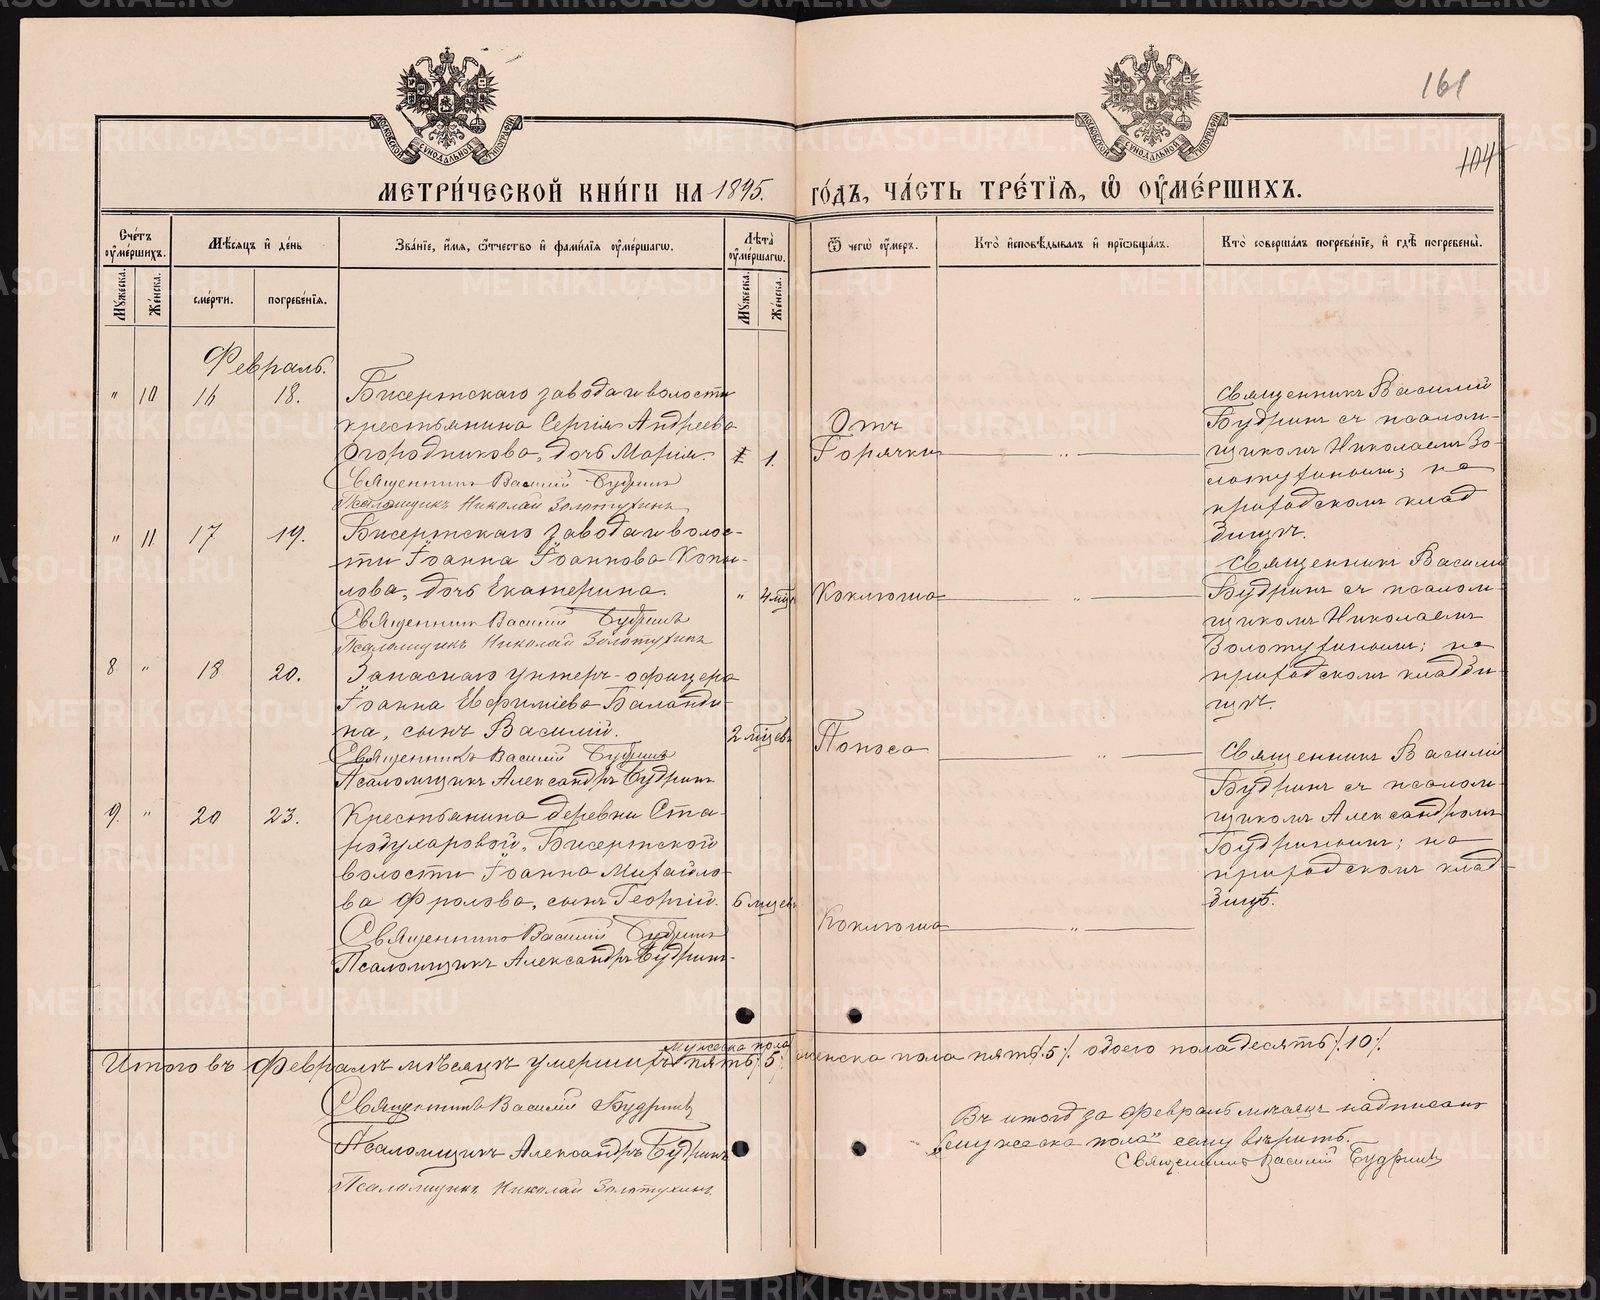 161
104
МОСКОВСКОЙ СѴНОДАЛЬНОЙ ТИПОГРАФІИ
МОСКОВСКОЙ СѴНОДАЛЬНОЙ ТИПОГРАФІИ
МЕТРИ́ЧЕСКОЙ КНИ́ГИ НА 1895. ГО́ДЪ, ЧА́СТЬ ТРЕ́ТІѦ, Ѡ ОУМЕ́РШИХЪ.
Сче́тъ оуме́ршихъ.
Мꙋ́жеска.
Же́нска.
Мѣ́сяцъ и де́нь
сме́рти.
погребе́нїѧ.
Зва́нїе, и́мѧ, ѻ҆́тчество и фами́лїѧ оуме́ршагѡ.
Лѣ́та оуме́ршагѡ.
Мꙋ́жеска.
Же́нска.
Ѿ чегѡ̀ оу́меръ.
Кто̀ и҆сповѣ́дывалъ и прїѡбща́лъ.
Кто̀ соверша́лъ погребе́нїе, и гдѣ̀ погребены̀.
Февраль.
" 10 16 18. Бисертскаго завода и волости
крестьянина Сергія Андреева
Огородникова, дочь Марія. 1.
Священникъ Василій Будринъ
Псаломщикъ Николай Золотухинъ
Отъ
Горячки
"
Священникъ Василій
Будринъ съ псалом-
щикомъ Николаемъ Зо-
лотухинымъ; на
приходскомъ клад
бищѣ.
" 11 17 19. Бисертскаго завода и волос-
ти Іоанна Іоаннова Копы-
лова, дочь Екатерина. " 4 мѣс
Священникъ Василій Будринъ
Псаломщикъ Николай Золотухинъ
Коклюша
"
Священникъ Василій
Будринъ съ псалом-
щикомъ Николаемъ
Золотухинымъ; на
приходскомъ кладби-
щѣ.
8 " 18 20. Запаснаго унтеръ-офицера
Іоанна Евфиміева Баланди-
на, сынъ Василій. 2 мѣсѧцевъ
Священникъ Василій Будринъ
Псаломщикъ Александръ Будринъ
Поноса
"
Священникъ Василій
Будринъ съ псалом-
щикомъ Александромъ
Будринымъ; на
приходскомъ клад-
бищѣ.
9. " 20 23. Крестьянина деревни Ста-
родухаровой, Бисертской
волости Іоанна Михайло-
ва Фролова, сынъ Георгій. 6 мѣсѧцев
Священникъ Василій Будринъ
Псаломщикъ Александръ Будринъ
Коклюша
"
мужеска пола
Итого въ Февралѣ мѣсяцѣ умершихъ пять /5/ женска пола пять /.5/. обоего пола десять /.10/.
Священникъ Василій Будринъ
Псаломщикъ Александръ Будринъ
Псаломщикъ Николай Золотухинъ
Въ итогѣ за Февраль мѣсяцъ надписано
"мужеска пола" сему вѣрить.
Священникъ Василій Будринъ